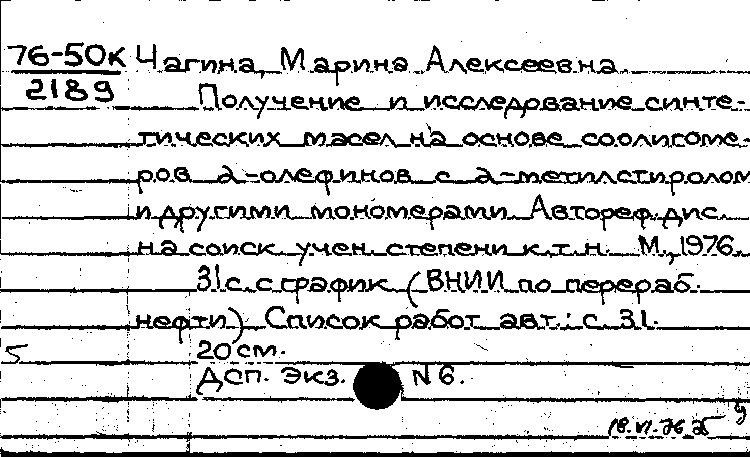 76-50к Чагина, Марина Алексеевна.
2189 Получение и исследование синте-
тических масел на основе соолигоме-
ров α-олефинов с α-метилстиролом
и другими мономерами. Автореф. дис.
на соиск. учен. степени к.т.н. М., 1976.
31 с. с график. (ВНИИ по перераб.
нефти) Список работ авт.: с. 31.
5 20 см.
ДСП. Экз. N 6.
18.VI.76